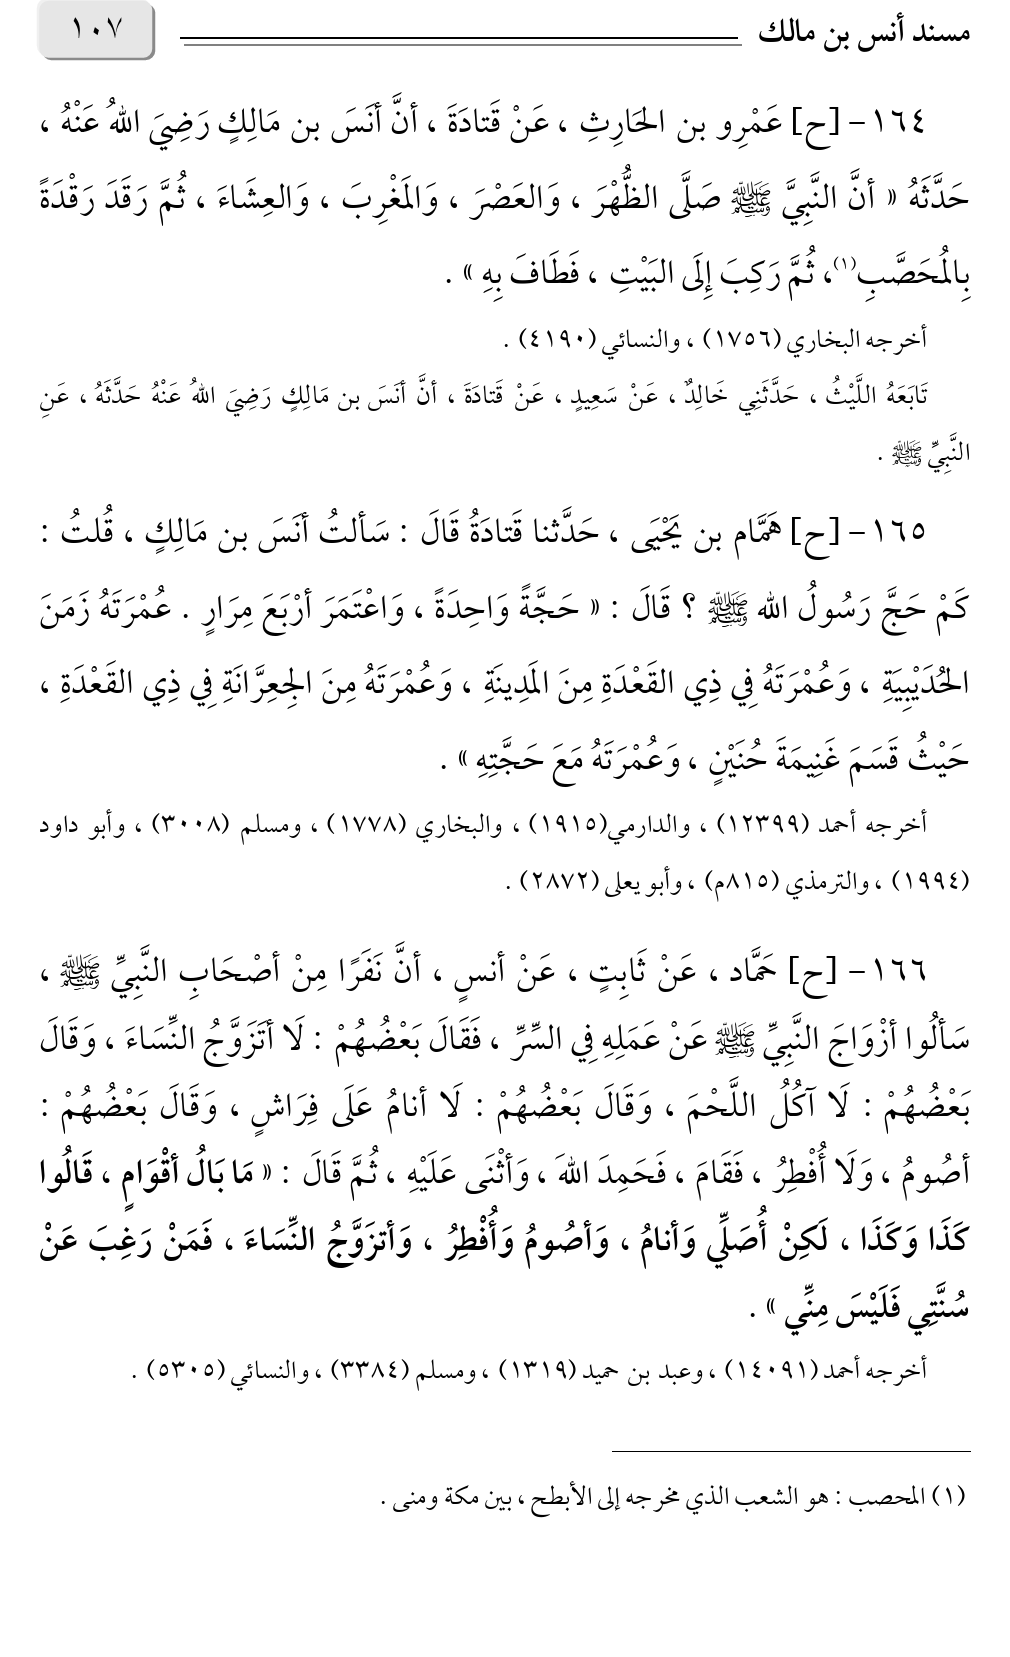 مسند أنس بن مالك ١٠٧
١٦٤ – [ح] عَمْرِو بن الحَارِثِ ، عَنْ قَتادَةَ ، أنَّ أنَسَ بن مَالِكٍ رَضِيَ اللهُ عَنْهُ ،
حَدَّثَهُ « أنَّ النَّبِيَّ ﷺ صَلَّى الظُّهْرَ ، وَالعَصْرَ ، وَالمَغْرِبَ ، وَالعِشَاءَ ، ثُمَّ رَقَدَ رَقْدَةً
بِالمُحَصَّبِ(١)، ثُمَّ رَكِبَ إِلَى البَيْتِ ، فَطَافَ بِهِ » .
أخرجه البخاري (١٧٥٦) ، والنسائي (٤١٩٠) .
تَابَعَهُ اللَّيْثُ ، حَدَّثَنِي خَالِدٌ ، عَنْ سَعِيدٍ ، عَنْ قَتادَةَ ، أنَّ أنَسَ بن مَالِكٍ رَضِيَ اللهُ عَنْهُ حَدَّثَهُ ، عَنِ
النَّبِيِّ ﷺ .
١٦٥ – [ح] هَمَّام بن يَحْيَى ، حَدَّثنا قَتادَةُ قَالَ : سَألتُ أنَسَ بن مَالِكٍ ، قُلتُ :
كَمْ حَجَّ رَسُولُ الله ﷺ ؟ قَالَ : « حَجَّةً وَاحِدَةً ، وَاعْتَمَرَ أرْبَعَ مِرَارٍ . عُمْرَتَهُ زَمَنَ
الحُدَيْبِيَةِ ، وَعُمْرَتَهُ فِي ذِي القَعْدَةِ مِنَ المَدِينَةِ ، وَعُمْرَتَهُ مِنَ الجِعِرَّانَةِ فِي ذِي القَعْدَةِ ،
حَيْثُ قَسَمَ غَنِيمَةَ حُنَيْنٍ ، وَعُمْرَتَهُ مَعَ حَجَّتِهِ » .
أخرجه أحمد (١٢٣٩٩) ، والدارمي(١٩١٥) ، والبخاري (١٧٧٨) ، ومسلم (٣٠٠٨) ، وأبو داود
(١٩٩٤) ، والترمذي (٨١٥م) ، وأبو يعلى (٢٨٧٢) .
١٦٦ – [ح] حَمَّاد ، عَنْ ثَابِتٍ ، عَنْ أنسٍ ، أنَّ نَفَرًا مِنْ أصْحَابِ النَّبِيِّ ﷺ ،
سَألُوا أزْوَاجَ النَّبِيِّ ﷺ عَنْ عَمَلِهِ فِي السِّرِّ ، فَقَالَ بَعْضُهُمْ : لَا أتَزَوَّجُ النِّسَاءَ ، وَقَالَ
بَعْضُهُمْ : لَا آكُلُ اللَّحْمَ ، وَقَالَ بَعْضُهُمْ : لَا أنامُ عَلَى فِرَاشٍ ، وَقَالَ بَعْضُهُمْ :
أصُومُ ، وَلَا أُفْطِرُ ، فَقَامَ ، فَحَمِدَ اللهَ ، وَأثْنَى عَلَيْهِ ، ثُمَّ قَالَ : « مَا بَالُ أقْوَامٍ ، قَالُوا
كَذَا وَكَذَا ، لَكِنْ أُصَلِّي وَأنامُ ، وَأصُومُ وَأُفْطِرُ ، وَأتزَوَّجُ النِّسَاءَ ، فَمَنْ رَغِبَ عَنْ
سُنَّتِي فَلَيْسَ مِنِّي » .
أخرجه أحمد (١٤٠٩١) ، وعبد بن حميد (١٣١٩) ، ومسلم (٣٣٨٤) ، والنسائي (٥٣٠٥) .
(١) المحصب : هو الشعب الذي مخرجه إلى الأبطح ، بين مكة ومنى .